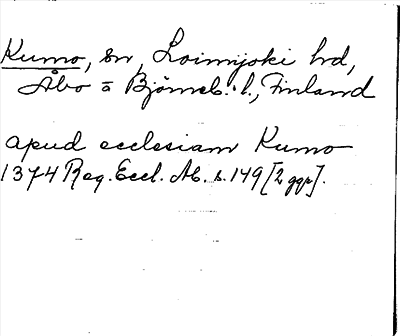 Kumo, sn, Loimijoki hd,
Åbo o Björneb. l., Finland
apud ecclesiam Kumo
1374 Reg. Eccl. Ab. s. 149 [2 ggr].